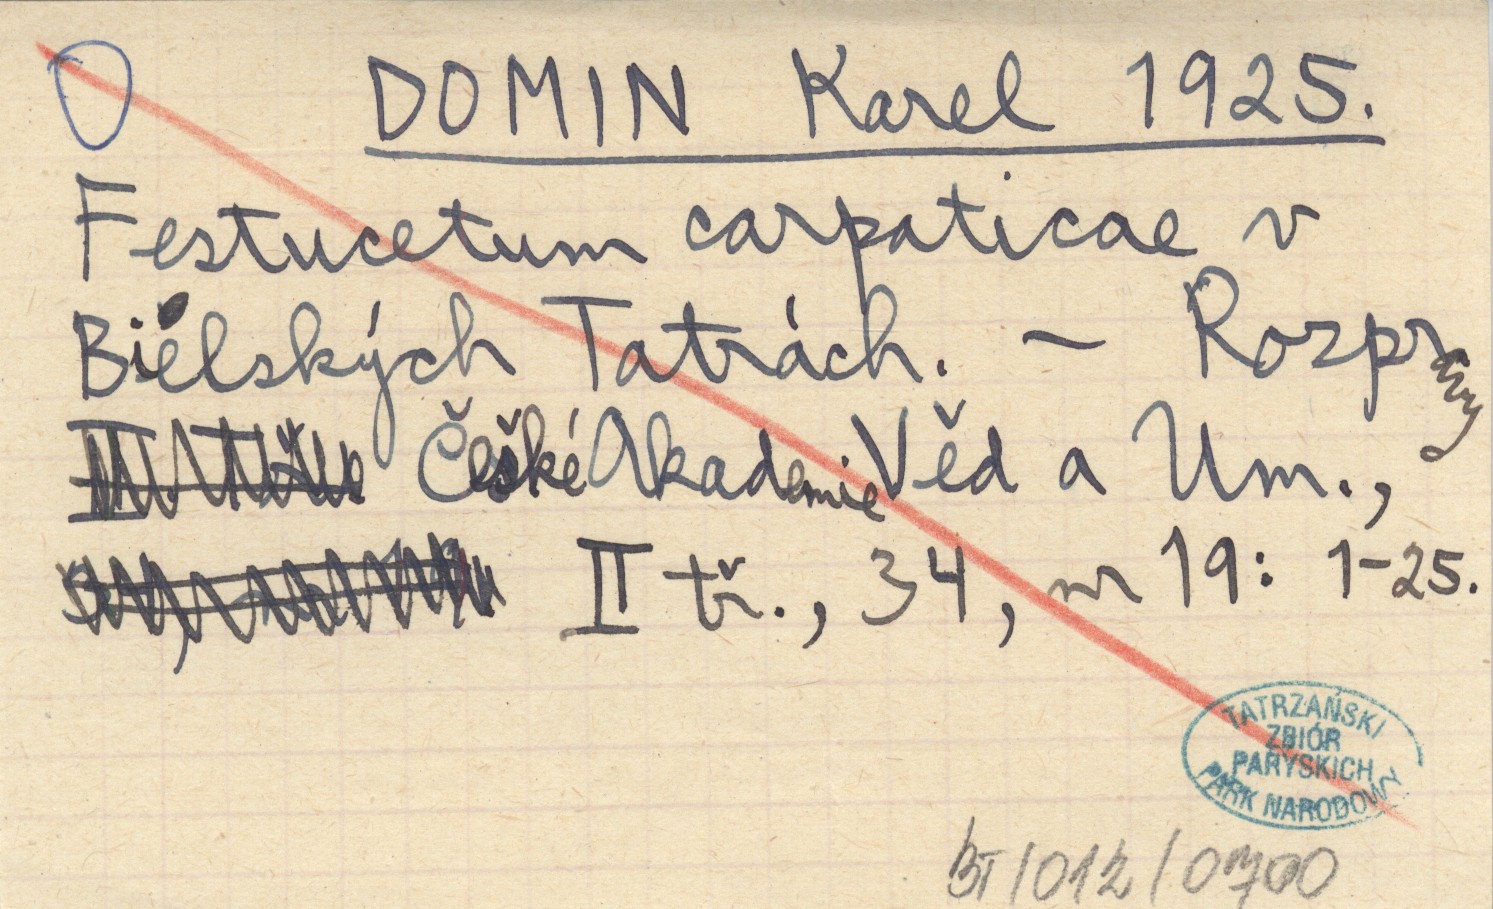 DOMIN Karel 1925.
Festucetum carpaticae v
Bielských Tatrách. – Rozpravy
České Akademie Věd a Um.,
II tř., 34, nr 19: 1-25.
TATRZAŃSKI
ZBIÓR
PARYSKICH
PARK NARODOWY
BT/012/0700